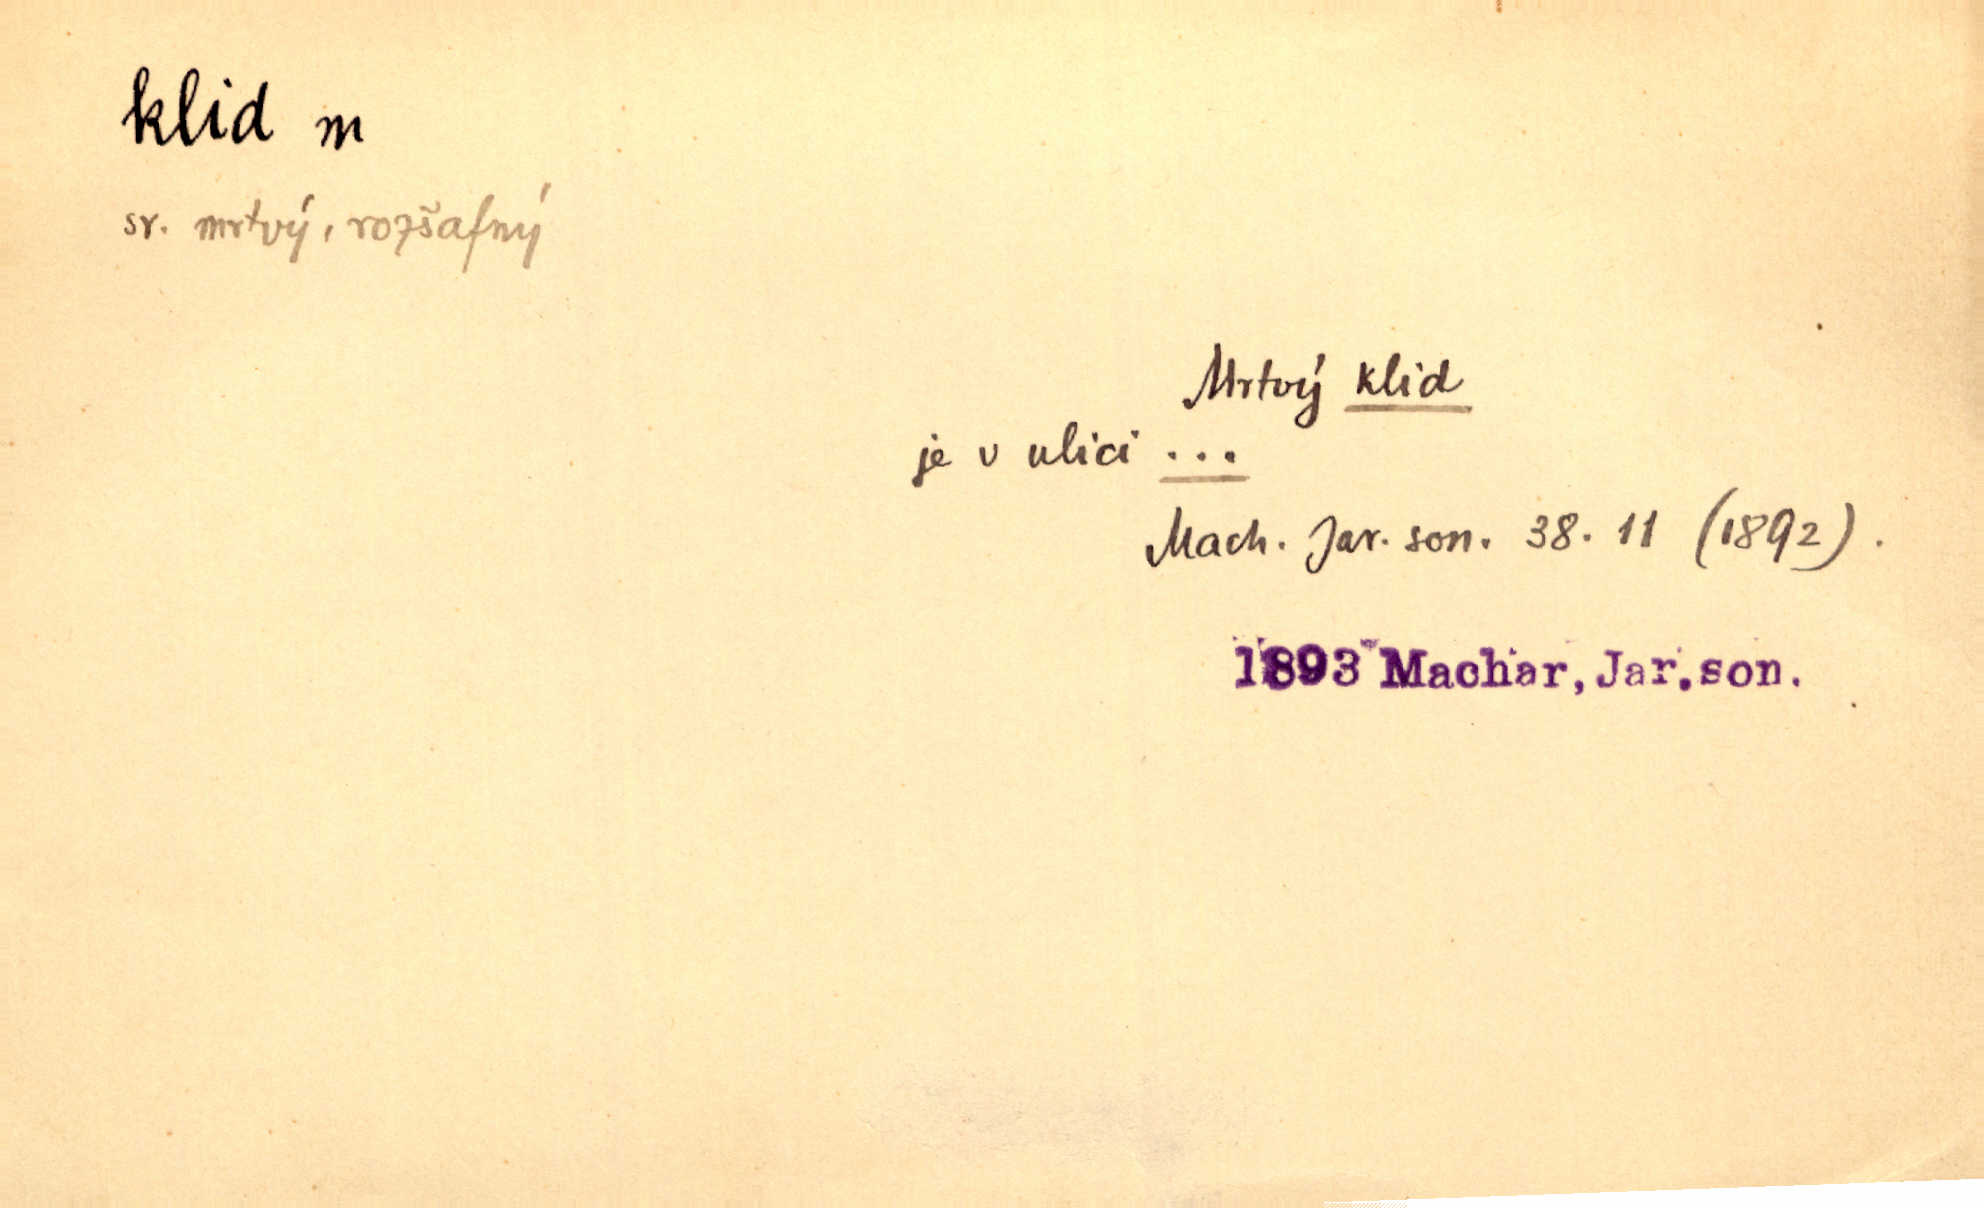 klid m
sr. mrtvý, rozšafný
Mrtvý klid
je v ulici ...
Mach. Jar. son. 38. 11 (1892).
1893 Machar, Jar.son.